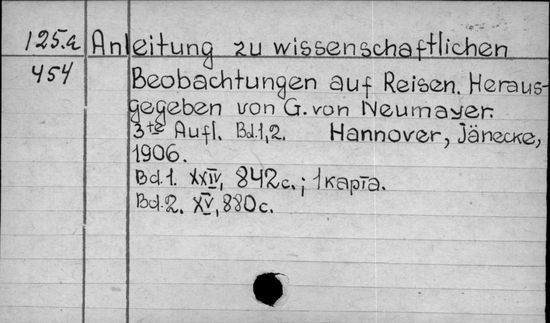 125.a Anleitung zu wissenschaftlichen
454 Beobachtungen auf Reisen. Heraus-
gegeben von G. von Neumayer.
3te Aufl. Bd.1,2. Hannover, Jänecke,
1906.
Bd.1. XXIV, 842c.; 1 карта.
Bd.2. XV, 880c.